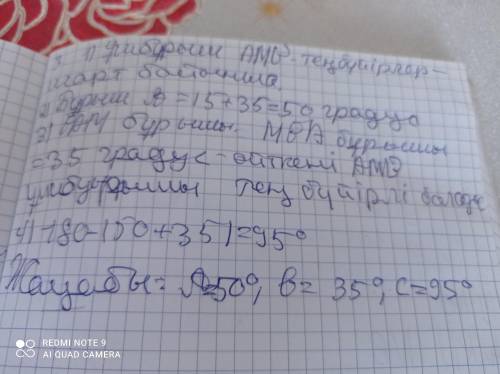 1) Үшбұрыш АМВ-теңбүйірлар-
шарт бойынша
2) Бұрыш А = 15 + 35 = 50 градус
3) бұрышы МВА бұрышы
= 35 градус - өйткені АМВ
үшбұрышы тең бүйірлі болады
4) 180 - (50 + 35) = 95°
Жауабы = А=50°, В = 35°, С = 95°
REDMI NOTE 9
AI QUAD CAMERA